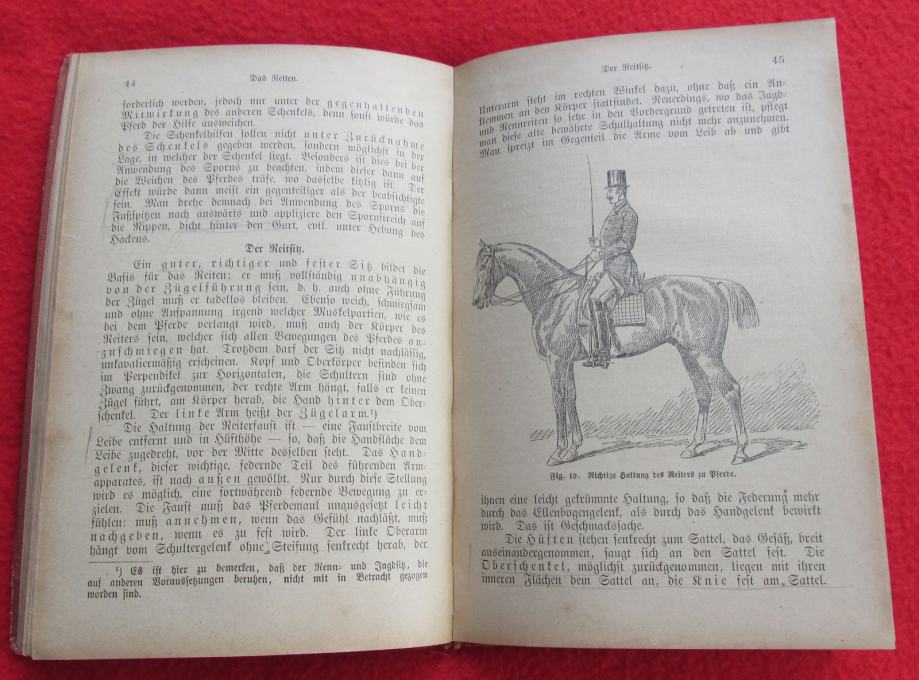 44
Das Reiten.
forderlich werden, jedoch nur unter der gegenhaltenden
Mitwirkung des anderen Schenkels, denn sonst würde das
Pferd der Hilfe ausweichen.
Die Schenkelhilfen sollen nicht unter Zurücknahme
des Schenkels gegeben werden, sondern möglichst in der
Lage, in welcher der Schenkel liegt. Besonders ist dies bei der
Anwendung des Sporns zu beachten, indem dieser dann auf
die Weichen des Pferdes träfe, wo dasselbe kitzlig ist. Der
Effekt würde dann meist ein gegenteiliger als der beabsichtigte
sein. Man drehe demnach bei Anwendung des Sporns die
Fußspitzen nach auswärts und appliziere den Spornstreich auf
die Rippen, dicht hinter den Gurt, evtl. unter Hebung des
Hackens.
Der Reitsitz.
Ein guter, richtiger und fester Sitz bildet die
Basis für das Reiten; er muß vollständig unabhängig
von der Zügelführung sein, d. h. auch ohne Führung
der Zügel muß er tadellos bleiben. Ebenso weich, schmiegsam
und ohne Anspannung irgend welcher Muskelpartien, wie es
bei dem Pferde verlangt wird, muß auch der Körper des
Reiters sein, welcher sich allen Bewegungen des Pferdes an-
zuschmiegen hat. Trotzdem darf der Sitz nicht nachläßig,
unkavaliermäßig erscheinen. Kopf und Oberkörper befinden sich
im Perpendikel zur Horizontalen, die Schultern sind ohne
Zwang zurückgenommen, der rechte Arm hängt, falls er keinen
Zügel führt, am Körper herab, die Hand hinter dem Ober-
schenkel. Der linke Arm heißt der Zügelarm.¹)
Die Haltung der Reiterfaust ist — eine Faustbreite vom
Leibe entfernt und in Hüfthöhe — so, daß die Handfläche dem
Leibe zugedreht, vor der Mitte desselben steht. Das Hand-
gelenk, dieser wichtige, federnde Teil des führenden Arm-
apparates, ist nach außen gewölbt. Nur durch diese Stellung
wird es möglich, eine fortwährend federnde Bewegung zu er-
zielen. Die Faust muß das Pferdemaul unausgesetzt leicht
fühlen: muß annehmen, wenn das Gefühl nachläßt, muß
nachgeben, wenn es zu fest wird. Der linke Oberarm
hängt vom Schultergelenk ohne Steifung senkrecht herab, der
¹) Es ist hier zu bemerken, daß der Renn- und Jagdsitz, die
auf anderen Voraussetzungen beruhen, nicht mit in Betracht gezogen
worden sind.
Der Reitsitz.
45
Unterarm steht im rechten Winkel dazu, ohne daß ein An-
klemmen an den Körper stattfindet. Neuerdings, wo das Jagd-
und Rennreiten so sehr in den Vordergrund getreten ist, pflegt
man diese alte bewährte Schulhaltung nicht mehr anzunehmen.
Man spreizt im Gegenteil die Arme vom Leib ab und gibt
Fig. 19. Richtige Haltung des Reiters zu Pferde.
ihnen eine leicht gekrümmte Haltung, so daß die Federung mehr
durch das Ellenbogengelenk, als durch das Handgelenk bewirkt
wird. Das ist Geschmacksache.
Die Hüften stehen senkrecht zum Sattel, das Gesäß, breit
auseinandergenommen, saugt sich an den Sattel fest. Die
Oberschenkel, möglichst zurückgenommen, liegen mit ihren
inneren Flächen dem Sattel an, die Knie fest am Sattel.